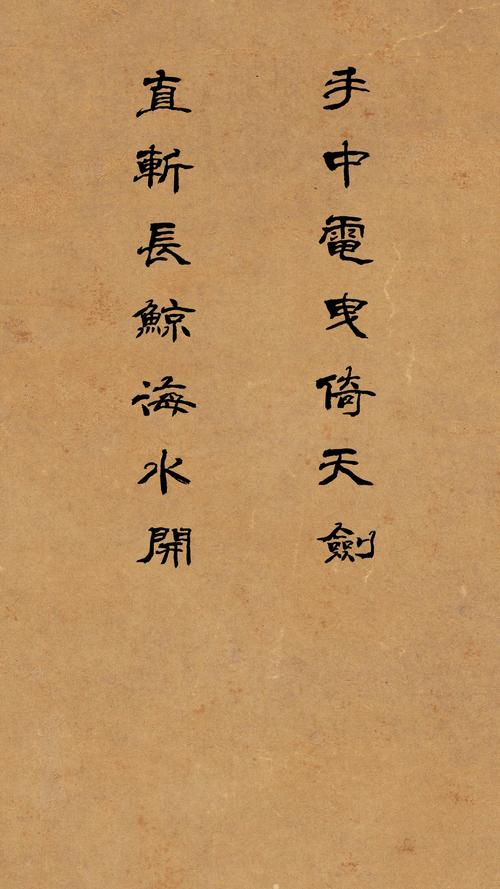 手中電曳倚天劍
直斬長鯨海水開